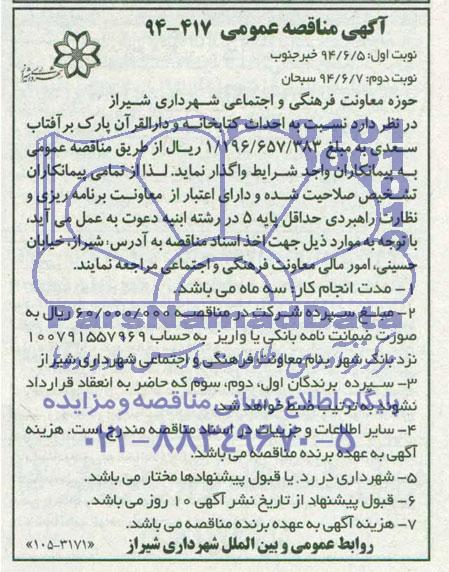 آگهی مناقصه عمومی ۴۱۷-۹۴
نوبت اول: ۹۴/۶/۵ خبرجنوب
نوبت دوم: ۹۴/۶/۷ سبحان
حوزه معاونت فرهنگی و اجتماعی شهرداری شیراز
در نظر دارد نسبت به احداث کتابخانه و دارالقرآن پارک برآفتاب
سعدی به مبلغ ۱/۲۹۶/۶۵۷/۳۸۳ ریال از طریق مناقصه عمومی
به پیمانکاران واجد شرایط واگذار نماید. لذا از تمامی پیمانکاران
تشخیص صلاحیت شده و دارای اعتبار از معاونت برنامه ریزی و
نظارت راهبردی حداقل پایه ۵ در رشته ابنیه دعوت به عمل می آید،
با توجه به موارد ذیل جهت اخذ اسناد مناقصه به آدرس: شیراز، خیابان
حسینی، امور مالی معاونت فرهنگی و اجتماعی مراجعه نمایند.
۱- مدت انجام کار: سه ماه می باشد.
۲- مبلغ سپرده شرکت در مناقصه ۶۰/۰۰۰/۰۰۰ ریال به
صورت ضمانت نامه بانکی یا واریز به حساب ۱۰۰۷۹۱۵۵۷۹۶۹
نزد بانک شهر بنام معاونت فرهنگی و اجتماعی شهرداری شیراز
۳- سپرده برندگان اول، دوم، سوم که حاضر به انعقاد قرارداد
نشوند به ترتیب ضبط خواهد شد.
۴- سایر اطلاعات و جزییات در اسناد مناقصه مندرج است. هزینه
آگهی به عهده برنده مناقصه می باشد.
۵- شهرداری در رد یا قبول پیشنهادها مختار می باشد.
۶- قبول پیشنهاد از تاریخ نشر آگهی ۱۰ روز می باشد.
۷- هزینه آگهی به عهده برنده مناقصه می باشد.
روابط عمومی و بین الملل شهرداری شیراز
«۱۰۵-۳۱۷۱»
ParsNamadData
پایگاه اطلاع رسانی مناقصه و مزایده
۰۲۱-۸۸۳۴۹۶۷۰-۵